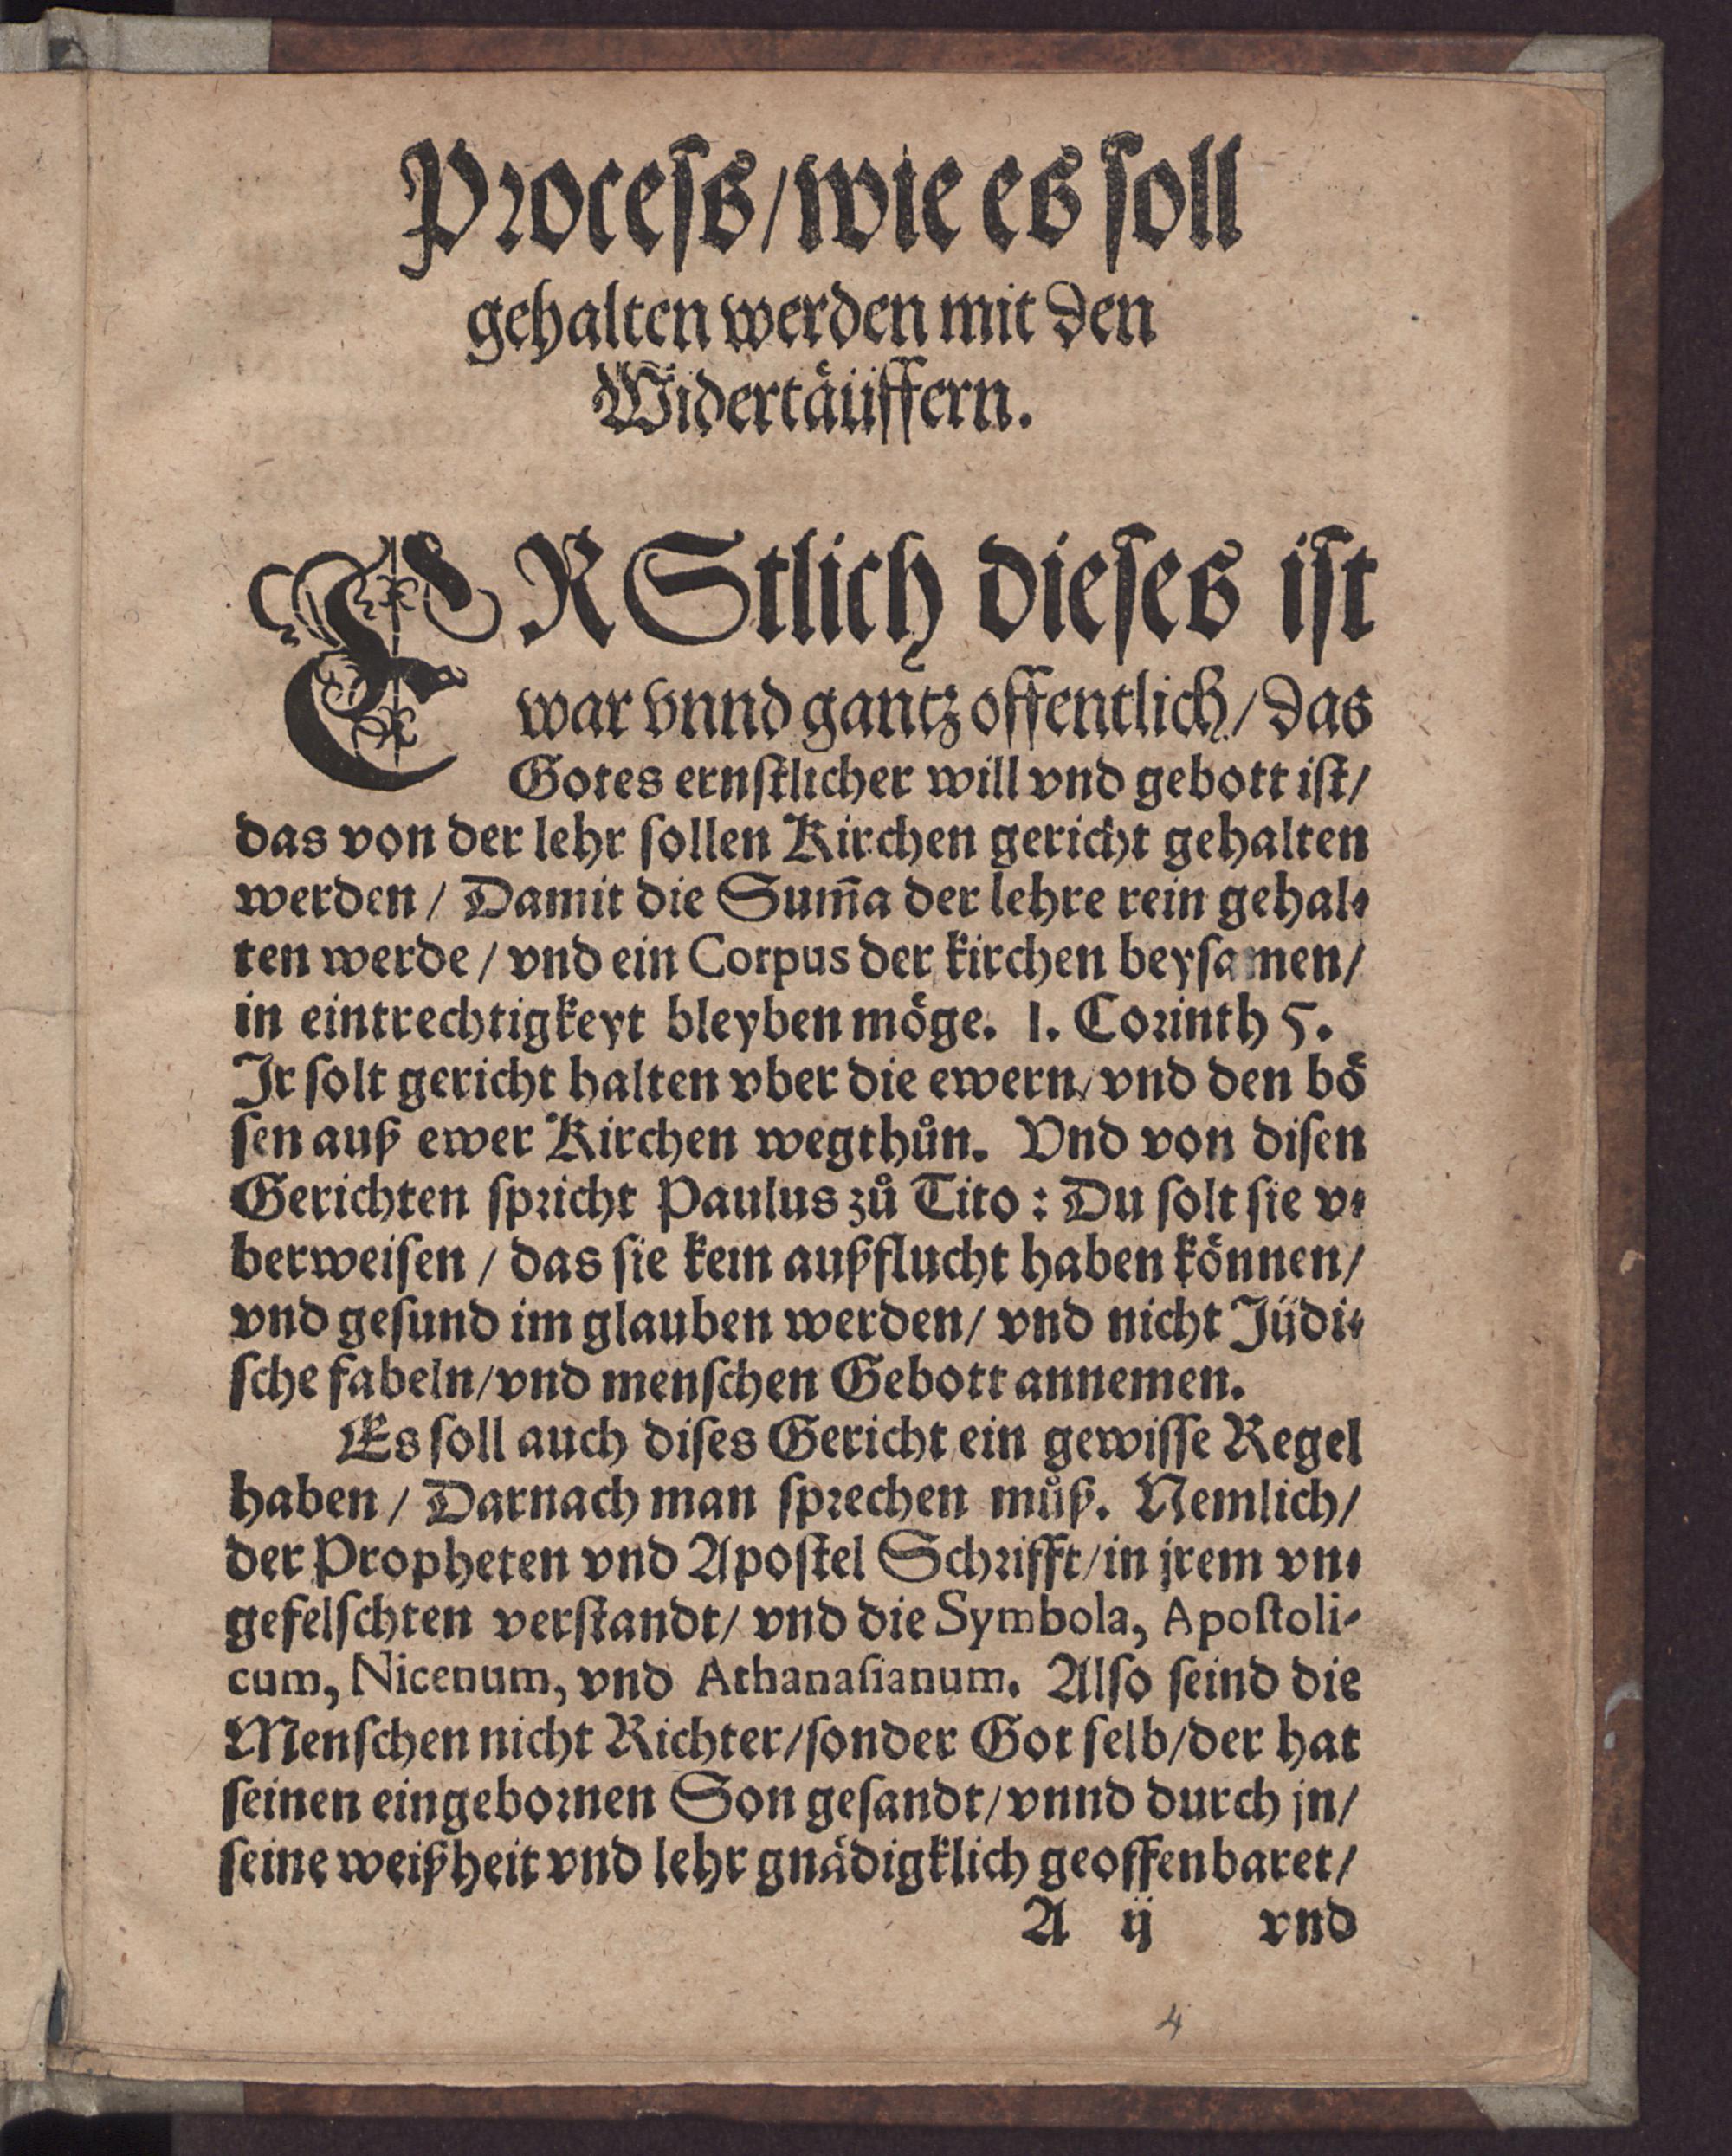 Process/wie es soll
gehalten werden mit den
Widertåüffern.
ERStlich dieses ist
war vnnd gantz offentlich/das
Gotes ernstlicher will vnd gebott ist/
das von der lehr sollen Kirchen gericht gehalten
werden/ Damit die Sum̃a der lehre rein gehal⸗
ten werde/ vnd ein Corpus der kirchen beysamen/
in eintrechtigkeyt bleyben möge. 1. Corinth 5.
Jr solt gericht halten vber die ewern/vnd den bö
sen auß ewer Kirchen wegthůn. Vnd von disen
Gerichten spricht Paulus zů Tito: Du solt sie v⸗
berweisen/ das sie kein außflucht haben können/
vnd gesund im glauben werden/ vnd nicht Jüdi⸗
sche fabeln/vnd menschen Gebott annemen.
Es soll auch dises Gericht ein gewisse Regel
haben/ Darnach man sprechen můß. Nemlich/
der Propheten vnd Apostel Schrifft/in jrem vn⸗
gefelschten verstandt/ vnd die Symbola, Apostoli-
cum, Nicenum, vnd Athanasianum. Also seind die
Menschen nicht Richter/sonder Got selb/der hat
seinen eingebornen Son gesandt/vnnd durch jn/
seine weißheit vnd lehr gnädigklich geoffenbaret/
A ij vnd
4